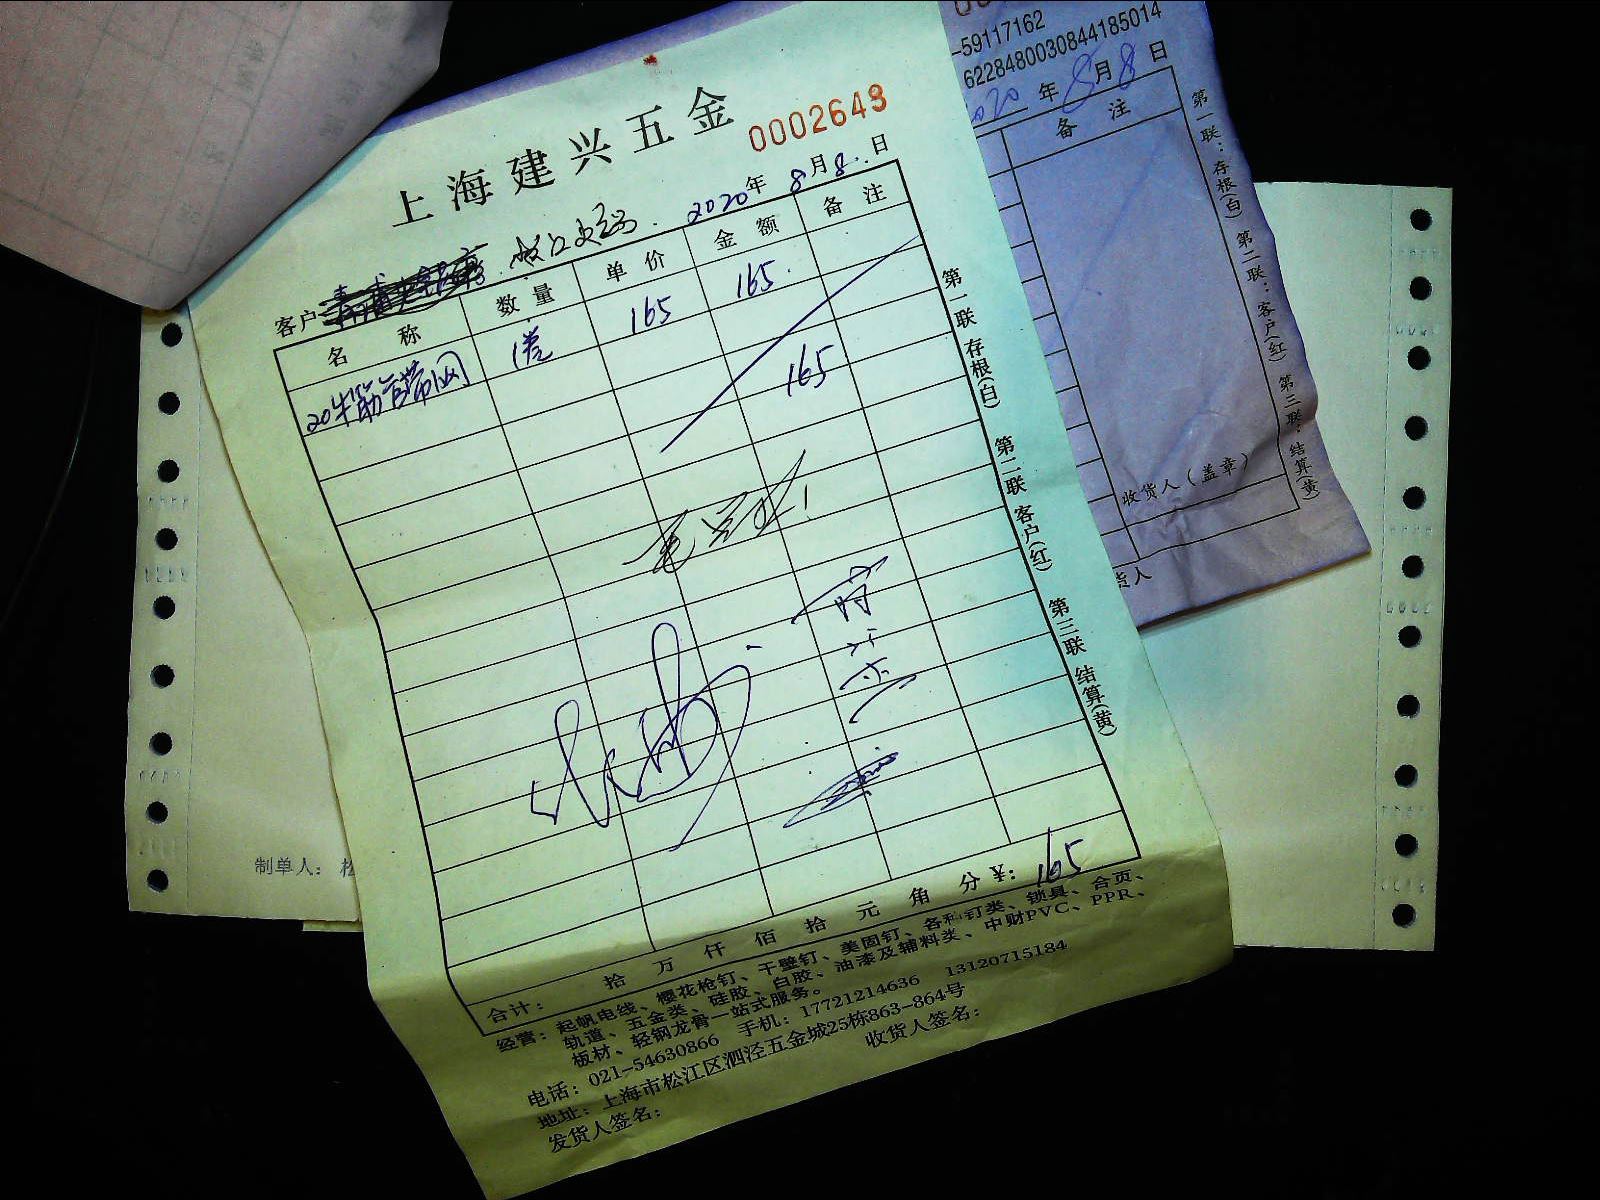 上海建兴五金
0002643
2020年 8月8日
客户
名称 数量 单价 金额 备注
20牛筋管带网 1卷 165 165
165
合计: 拾 万 仟 佰 拾 元 角 分 ¥: 165
经营: 起帆电线、樱花枪钉、干壁钉、美固钉、各种钉类、锁具、合页、
轨道、五金类、硅胶、白胶、油漆及辅料类、中财PVC、PPR、
板材、轻钢龙骨一站式服务。
电话: 021-54630866 手机: 17721214636 13120715184
地址: 上海市松江区泗泾五金城25栋863-864号
发货人签名: 收货人签名:
第一联 存根(白) 第二联 客户(红) 第三联 结算(黄)
-59117162
6228480030844185014
2020 年 8月8日
备注
收货人(盖章)
货人
第一联: 存根(白) 第二联: 客户(红) 第三联: 结算(黄)
制单人: 松